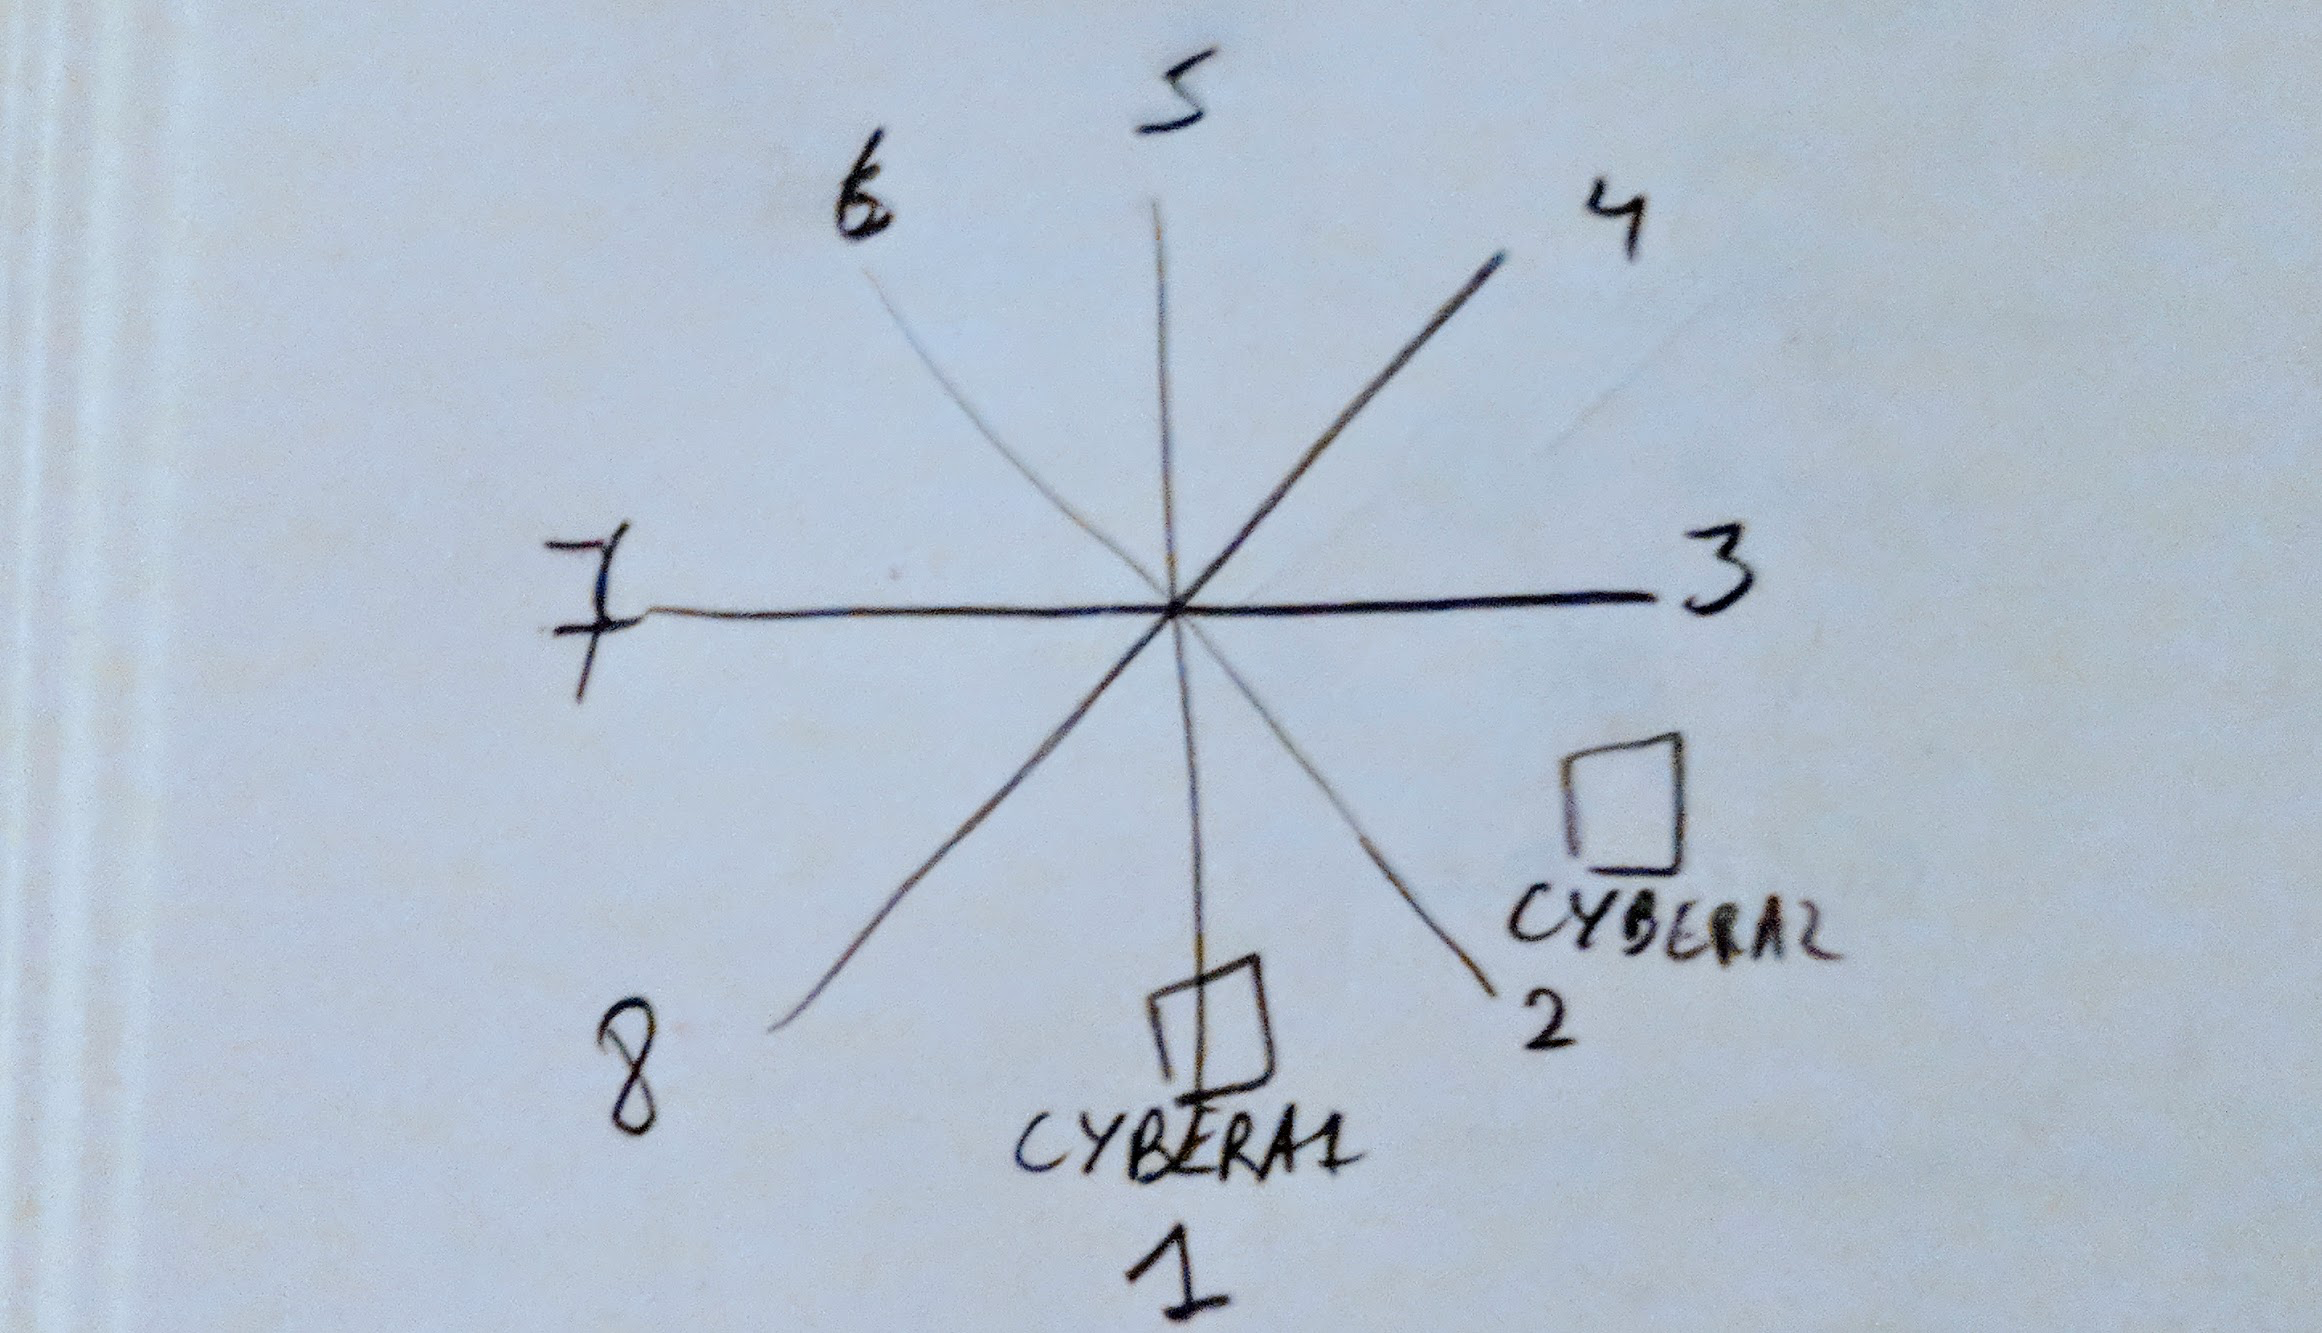 5
6
4
7
3
CYBERA2
2
8
CYBERA1
1